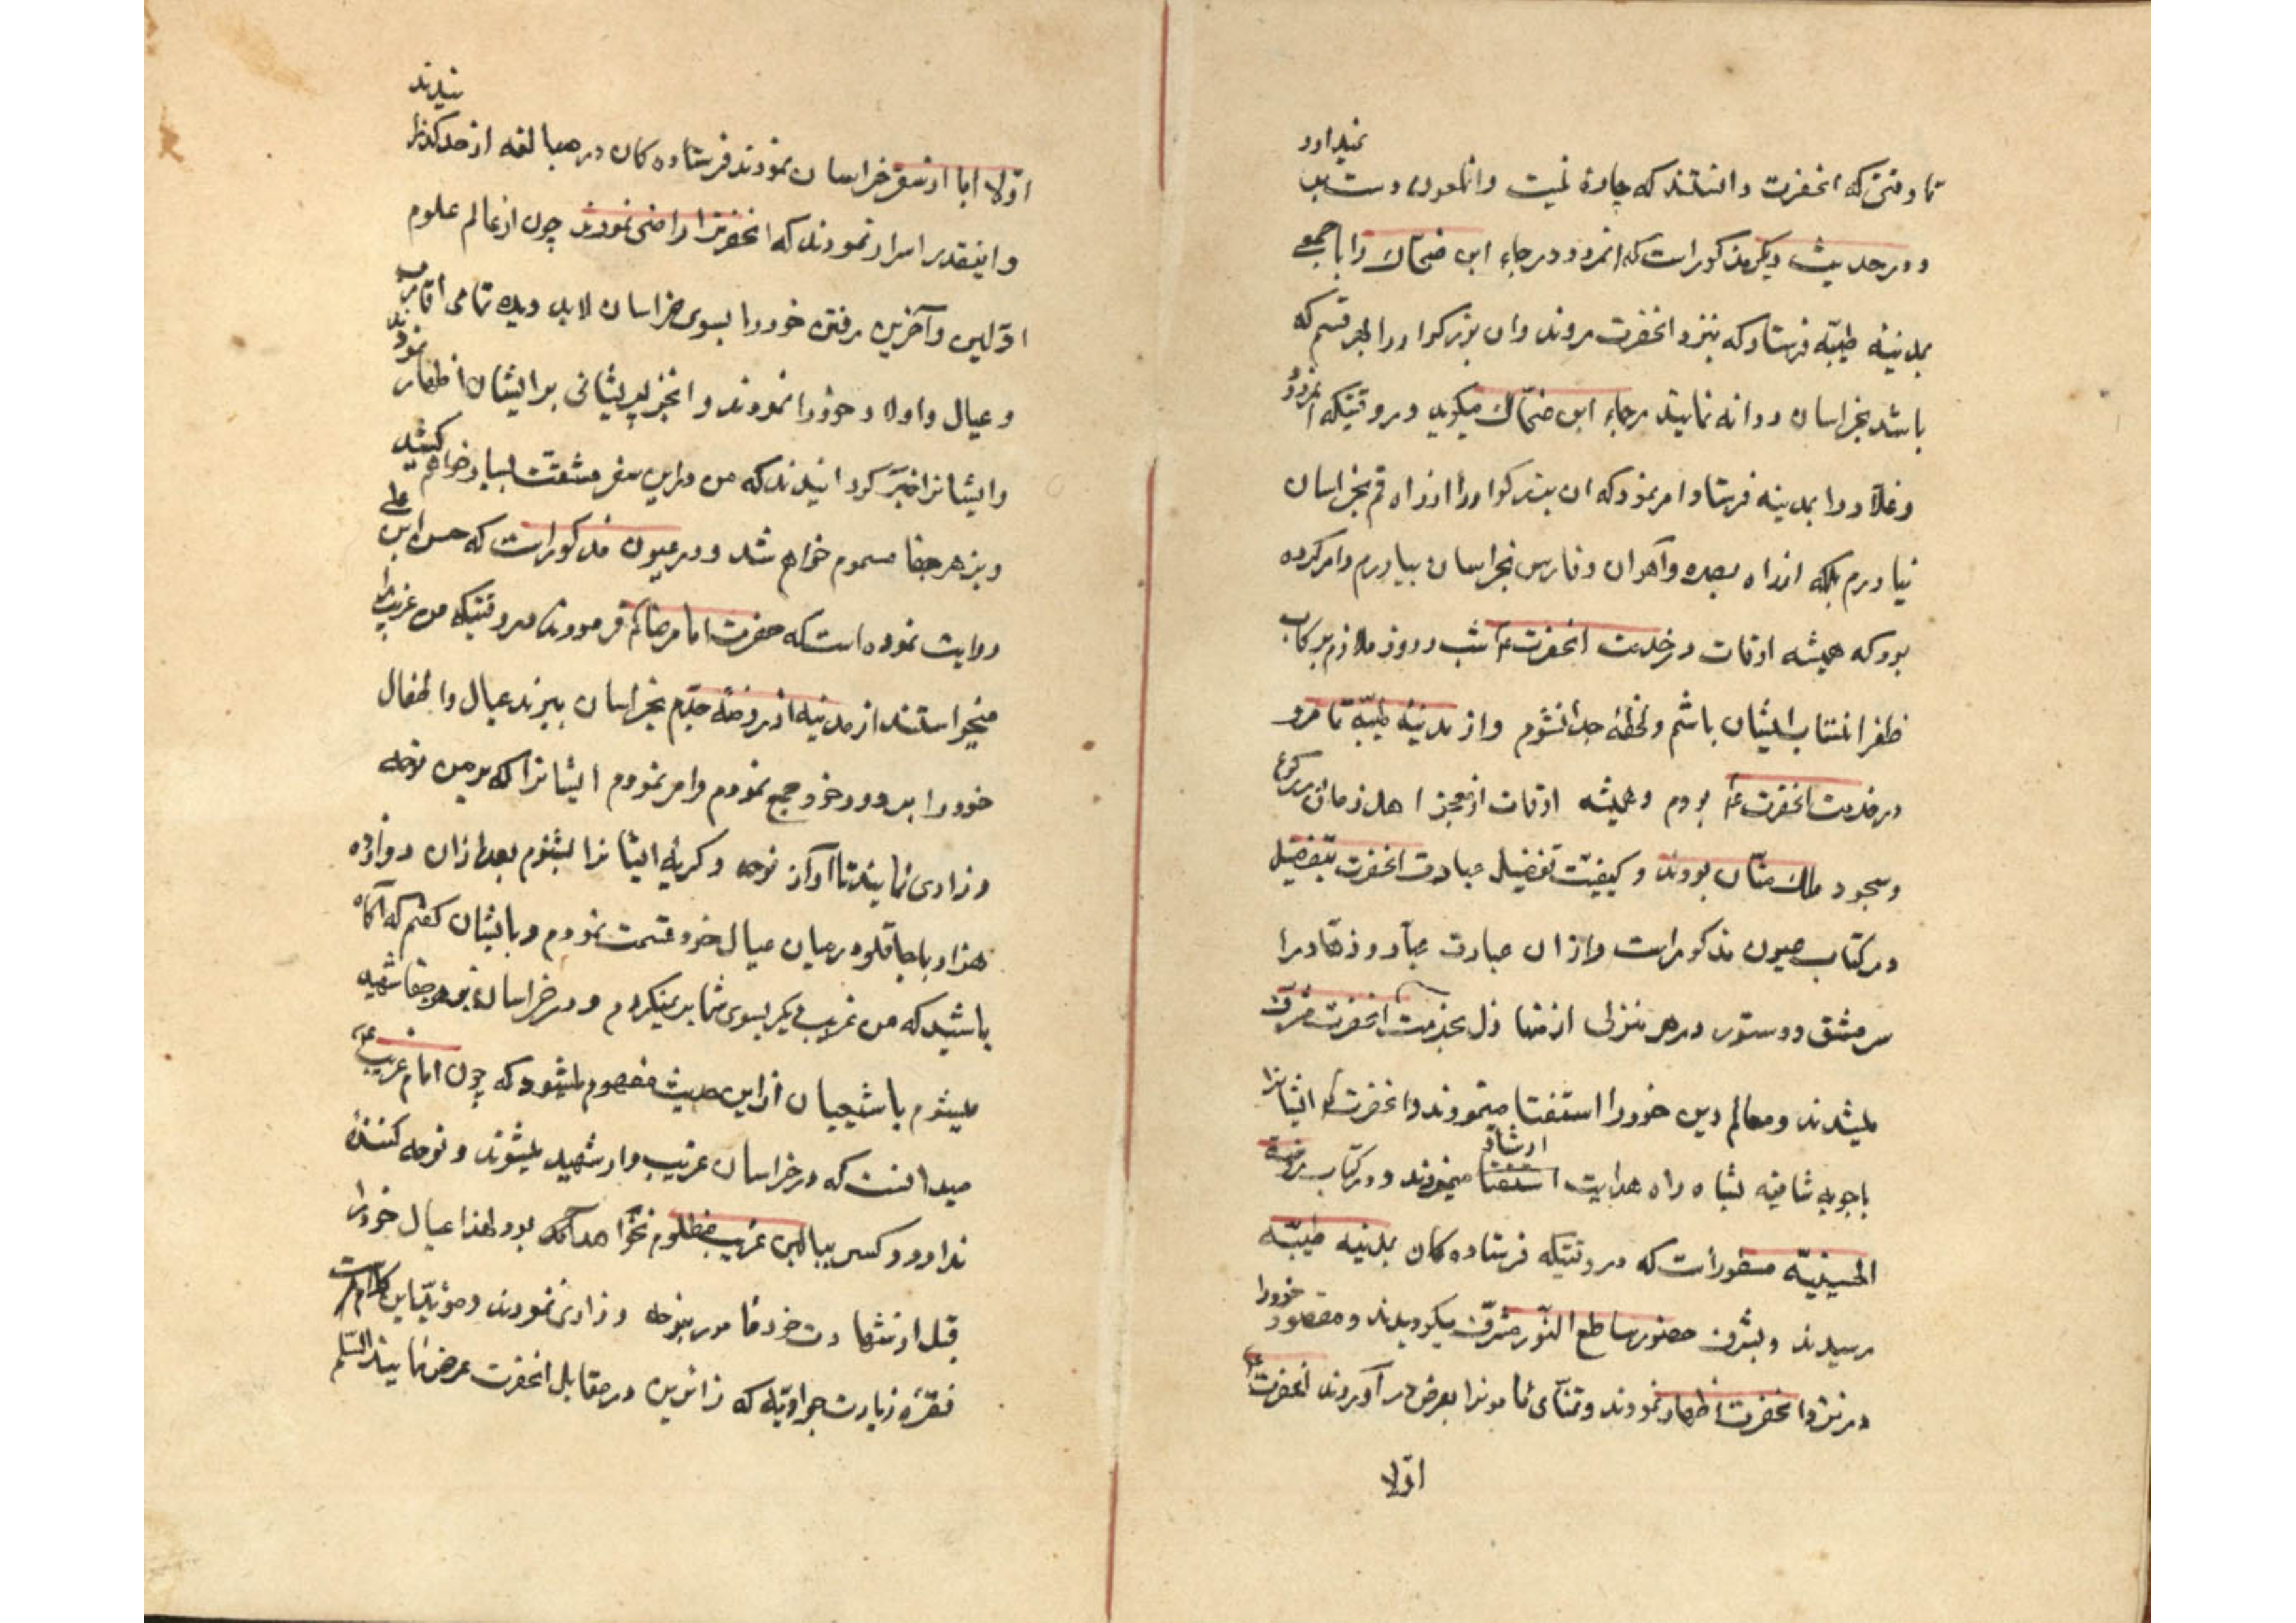 تا وقتی که انحضرت دانستند که چارهٔ نیست وانملعون دست بر نمیدارد
و در حدیث دیگر مذکور است که انمردود رجاء ابن ضحاک را با جمعی
بمدینهٔ طیبّه فرستاد که بنزد انحضرت بروند وان بزرکوار را بهر قسم که
باشد بخراسان روانه نمایند رجاء ابن ضحّاک میکوید در وقتیکه انمردود
مرا بمدینه فرستاد امر نمود که ان بزرکوار را از راه قم بخراسان
نیاورم بلکه از راه بصره واهواز و فارس بخراسان بیاورم وامر کرده
بود که همیشه اوقات در خدمت انحضرتؑ شب و روز ملازم برکاب
ظفر انتساب ایشان باشم ولحظهٔ جدا نشوم واز مدینهٔ طیبّه تا مرو
در خدمت انحضرتؑ بودم و همیشه اوقات ان اهل زمان در رکوع
وسجود ملک منّان بودند و کیفیّت تفصیل عبادت انحضرت بتفصیل
در کتاب عیون مذکور است وازان عبادت عبّاد و زهّاد را
سرمشق و دستور در هر منزلی از منازل بخدمت انحضرت مشرّف
میشدند ومعالم دین خود را استفتا مینمودند وانحضرتؑ ایشانرا
باجوبه شافیه بشاه راه هدایت ارشاد مینمودند و در کتاب روضة
الحسینیّه مسطور است که در وقتیکه فرستاده کان بمدینه طیبّه
رسیدند و بشرف حضور ساطع النّور مشرّف کردیدند و مقصود خود را
در نزد انحضرت اظهار نمودند و تمنّای مأمونرا بعرض در آوردند انحضرتؑ
اوّلا
اوّلا ابا از سفر خراسان نمودند فرستاده کان در مبالغه از حد کذرانیدند
و اینقدر اصرار نمودند که انحضرترا راضی نمودند چون از عالم علوم
اوّلین وآخرین رفتن خود را بسوی خراسان لابد دیده تمامی اقارب
و عیال واولاد خود را نمودند و بر ایشان اظهار نمودند
وایشانرا خبر کردانیدند که من در این سفر مشقت بسیار خواهم کشید
وبزهر جفا مسموم خواهم شد و در عیون مذکور است که حسن ابن علی
روایت نموده است که حضرت امام رضاؑ فرمودند در وقتیکه من غریب را
میخواستند از مدینه از روضهٔ جدّم بخراسان ببرند عیال واطفال
خود را بر دور خود جمع نمودم وامر نمودم ایشانرا که بر من نوحه
و زاری نمایند تا آواز نوحه و کریهٔ ایشانرا بشنوم بعد ازان دوازده
هزار باجاقلو در میان عیال خود قسمت نمودم وبایشان کفتم که آکاه
باشید که من غریب دیکر بسوی شما بر نمیکردم و در خراسان بزهر جفا شهید
میشوم یا شیعیان از این حدیث مفهوم میشود که چون امام غریبؑ
میدانست که در خراسان غریب وار شهید میشوند و نوحه کنندهٔ
ندارد و کسی ببالین غریب مظلوم نخواهد آمد بود لهذا عیال خود را
قبل از شهادت خود مأمور بنوحه و زاری نمودند ومؤیّد این کلام است
فقرهٔ زیارت جوادیّه که زائرین در مقابل انحضرت عرض نمایند السّلم